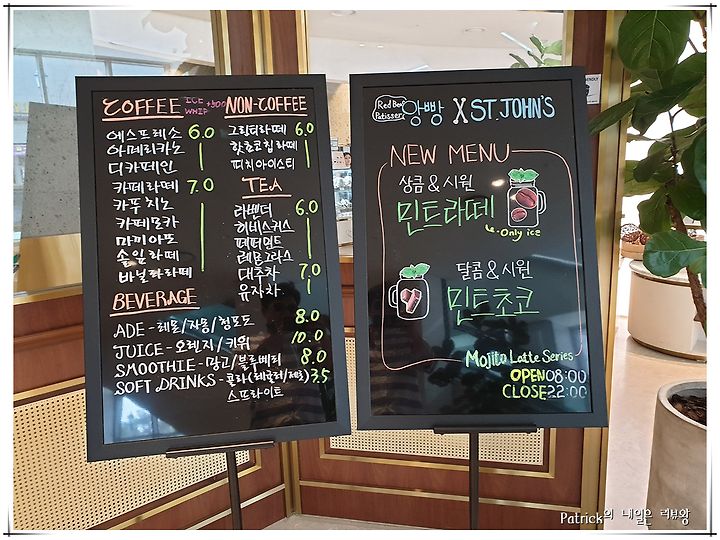 COFFEE ICE WHIP +500
에스프레소 6.0
아메리카노
디카페인
카페라떼 7.0
카푸치노
카페모카
마끼아또
솔잎라떼
바닐라라떼
NON-COFFEE
그린티라떼 6.0
핫초코칩라떼
피치아이스티
TEA
라벤더 6.0
히비스커스
페퍼민트
레몬그라스
대추차 7.0
유자차
BEVERAGE
ADE - 레몬/자몽/청포도 8.0
JUICE - 오렌지/키위 10.0
SMOOTHIE - 망고/블루베리 8.0
SOFT DRINKS - 콜라(레귤러/제로) 3.5
스프라이트
Red Bean Patisserie 앙빵 X ST JOHN'S
NEW MENU
상콤 & 시원
민트라떼
Only ice
달콤 & 시원
민트초코
Mojito Latte Series
OPEN 08:00
CLOSE 22:00
Patrick의 내일은 리뷰왕